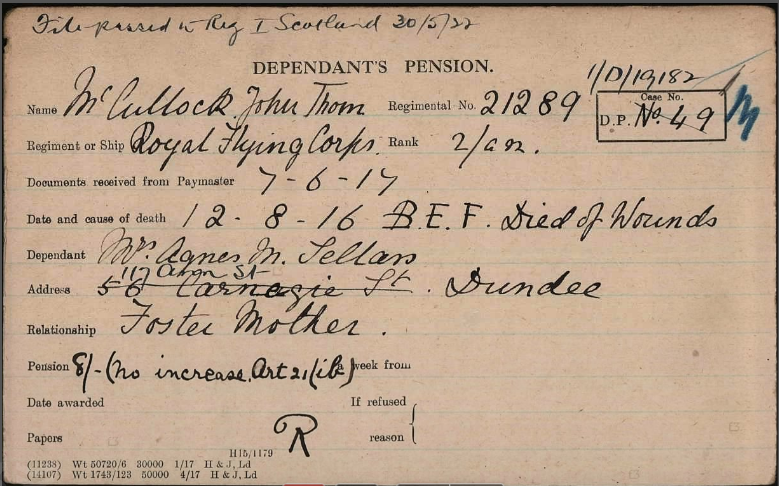 File passed to Reg I Scotland 30/5/22
DEPENDANT'S PENSION.
1/D/19182
Name McCullock. John Thom Regimental No. 21289
Case No.
D.P. No. 49
M
Regiment or Ship Royal Flying Corps. Rank 2/am.
Documents received from Paymaster 7-6-17
Date and cause of death 12-8-16 B.E.F. Died of Wounds
Dependant Mrs. Agnes M. Sellars
117 St
Address 56 Carnegie St. Dundee
Relationship Foster Mother.
Pension 8/- (no increase. Art 21 (ib) a week from
Date awarded If refused
Papers R reason
H15/1179
(11238) Wt 50720/6 30000 1/17 H & J, Ld
(14107) Wt 1743/123 50000 4/17 H & J, Ld